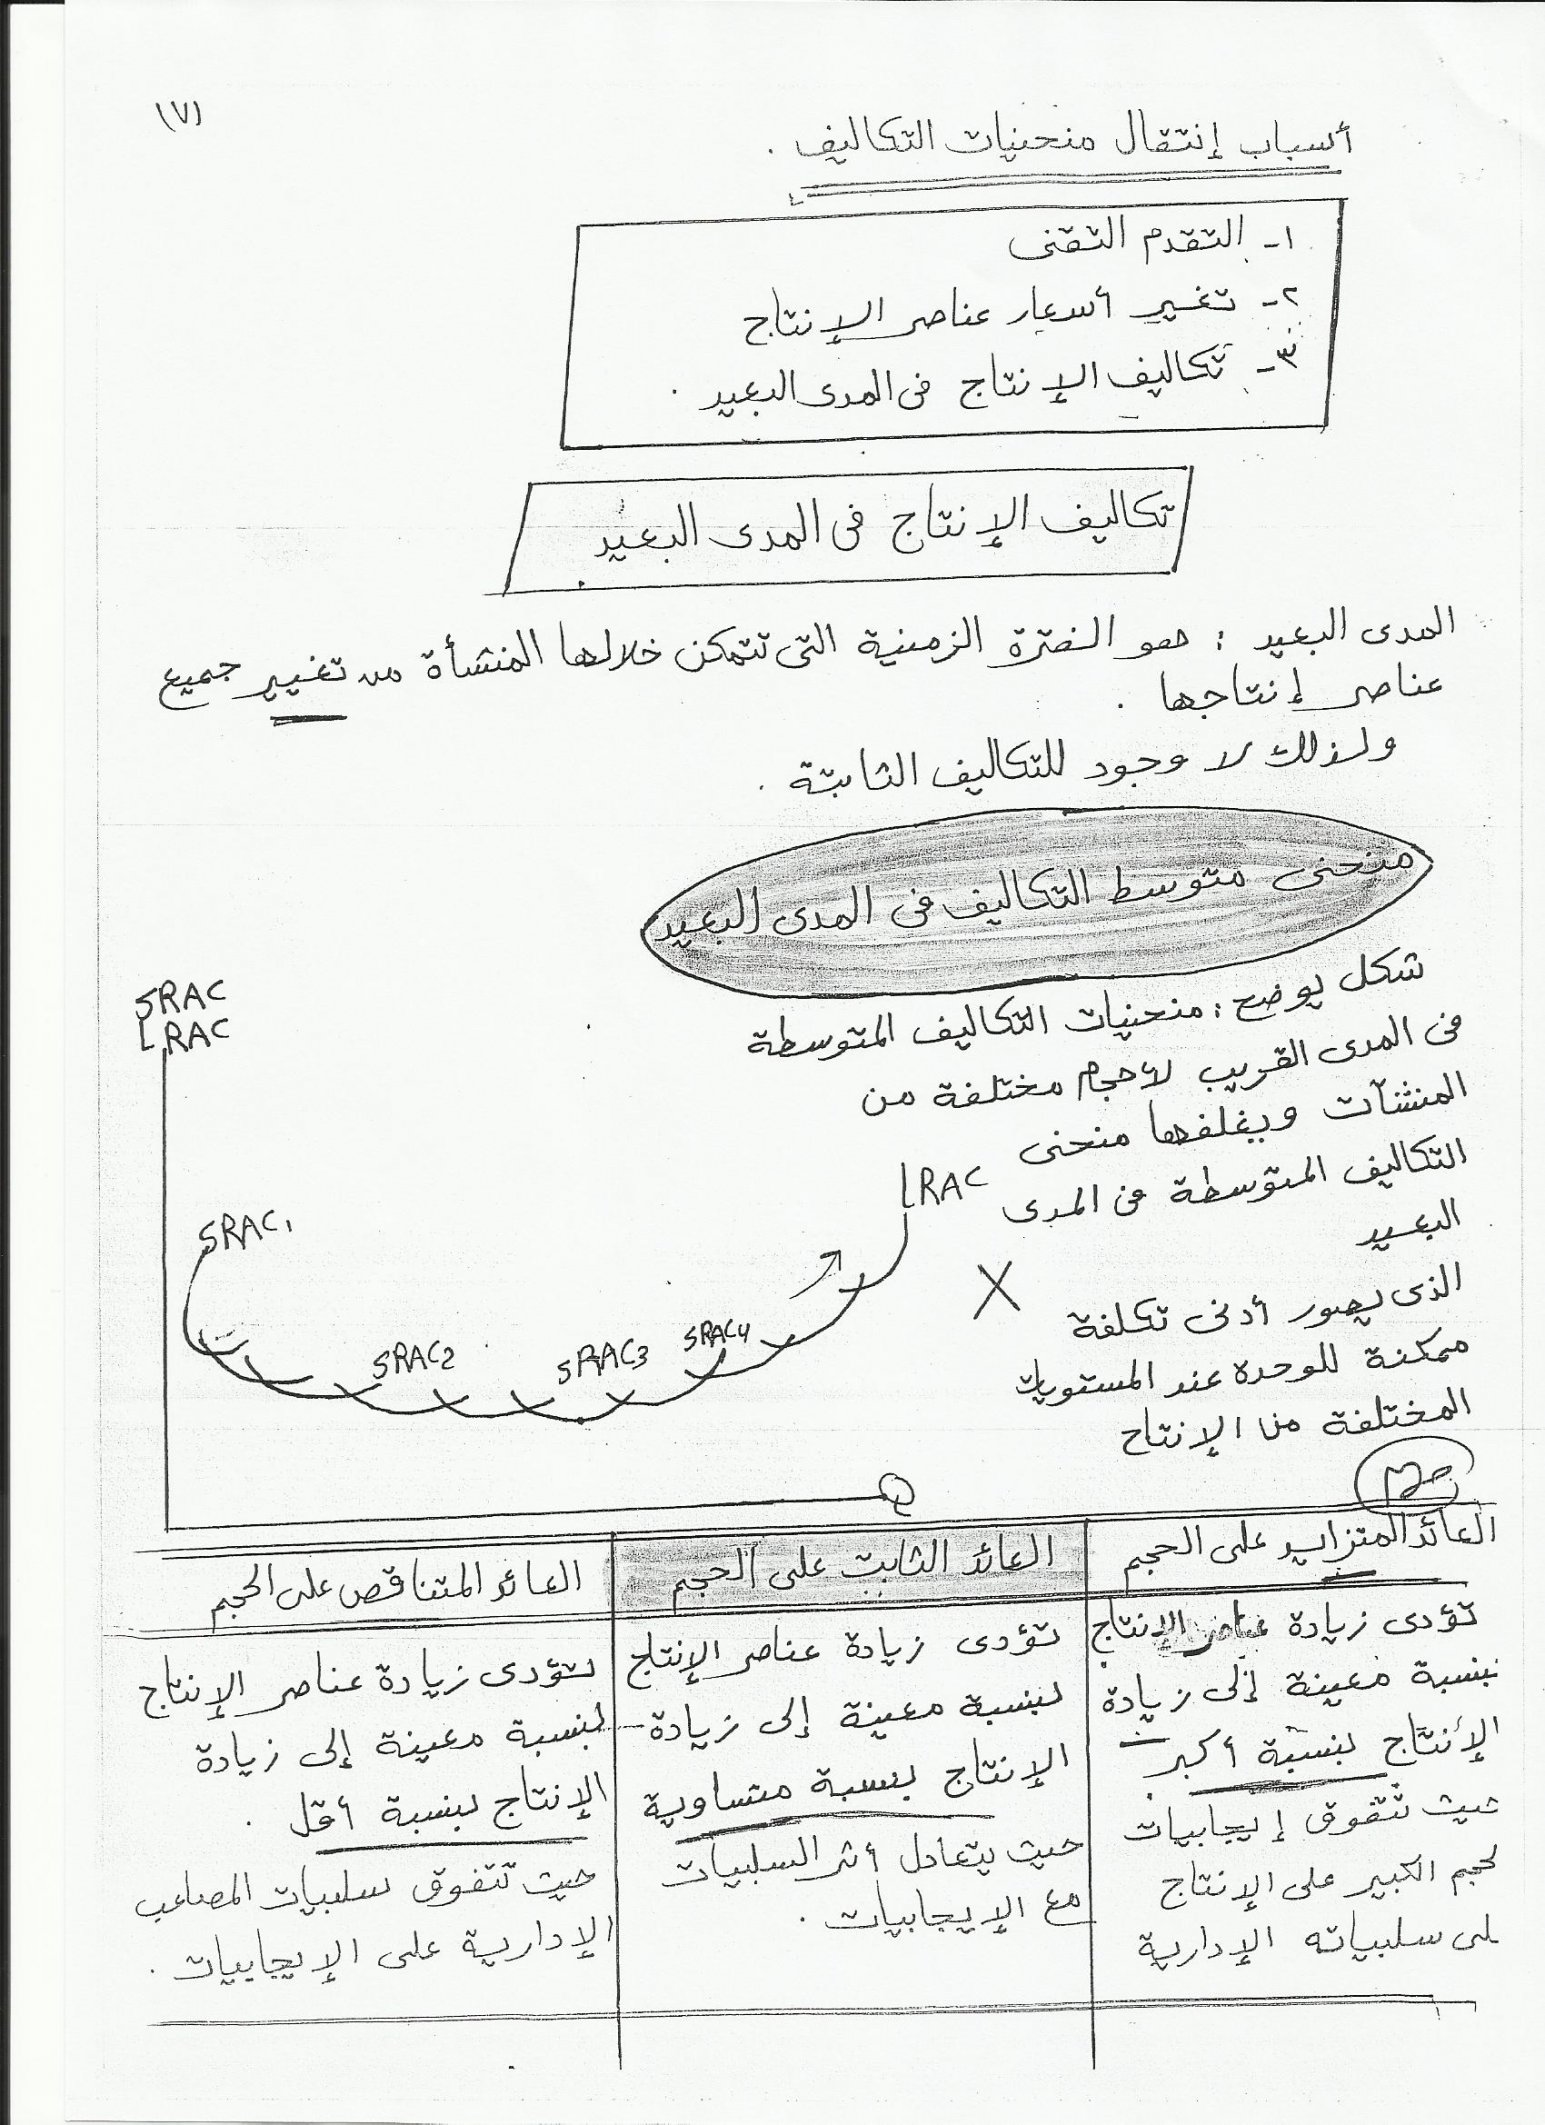 (٧)
أسباب إنتقال منحنيات التكاليف .
١- التقدم التقنى
٢- تغير أسعار عناصر الإنتاج
٣- تكاليف الإنتاج فى المدى البعيد .
تكاليف الإنتاج فى المدى البعيد
المدى البعيد : هو الفترة الزمنية التى تتمكن خلالها المنشأة من تغيير جميع
عناصر إنتاجها .
ولذلك لا وجود للتكاليف الثابتة .
منحنى متوسط التكاليف فى المدى البعيد
شكل يوضح : منحنيات التكاليف المتوسطة
فى المدى القريب لأحجام مختلفة من
المنشآت ويغلفها منحنى
التكاليف المتوسطة فى المدى
البعيد
الذى يصور أدنى تكلفة
ممكنة للوحدة عند المستويات
المختلفة من الإنتاج
SRAC
LRAC
SRAC1
SRAC2
SRAC3
SRAC4
LRAC
X
Q
العائد المتزايد على الحجم
تؤدى زيادة عناصر الإنتاج
بنسبة معينة إلى زيادة
الإنتاج بنسبة أكبر
حيث تتفوق إيجابيات
لحجم الكبير على الإنتاج
لى سلبياته الإدارية
العائد الثابت على الحجم
تؤدى زيادة عناصر الإنتاج
بنسبة معينة إلى زيادة
الإنتاج بنسبة متساوية
حيث يتعادل أثر السلبيات
مع الإيجابيات .
العائد المتناقص على الحجم
تؤدى زيادة عناصر الإنتاج
بنسبة معينة إلى زيادة
الإنتاج بنسبة أقل .
حيث تتفوق سلبيات المصاعب
الإدارية على الإيجابيات .